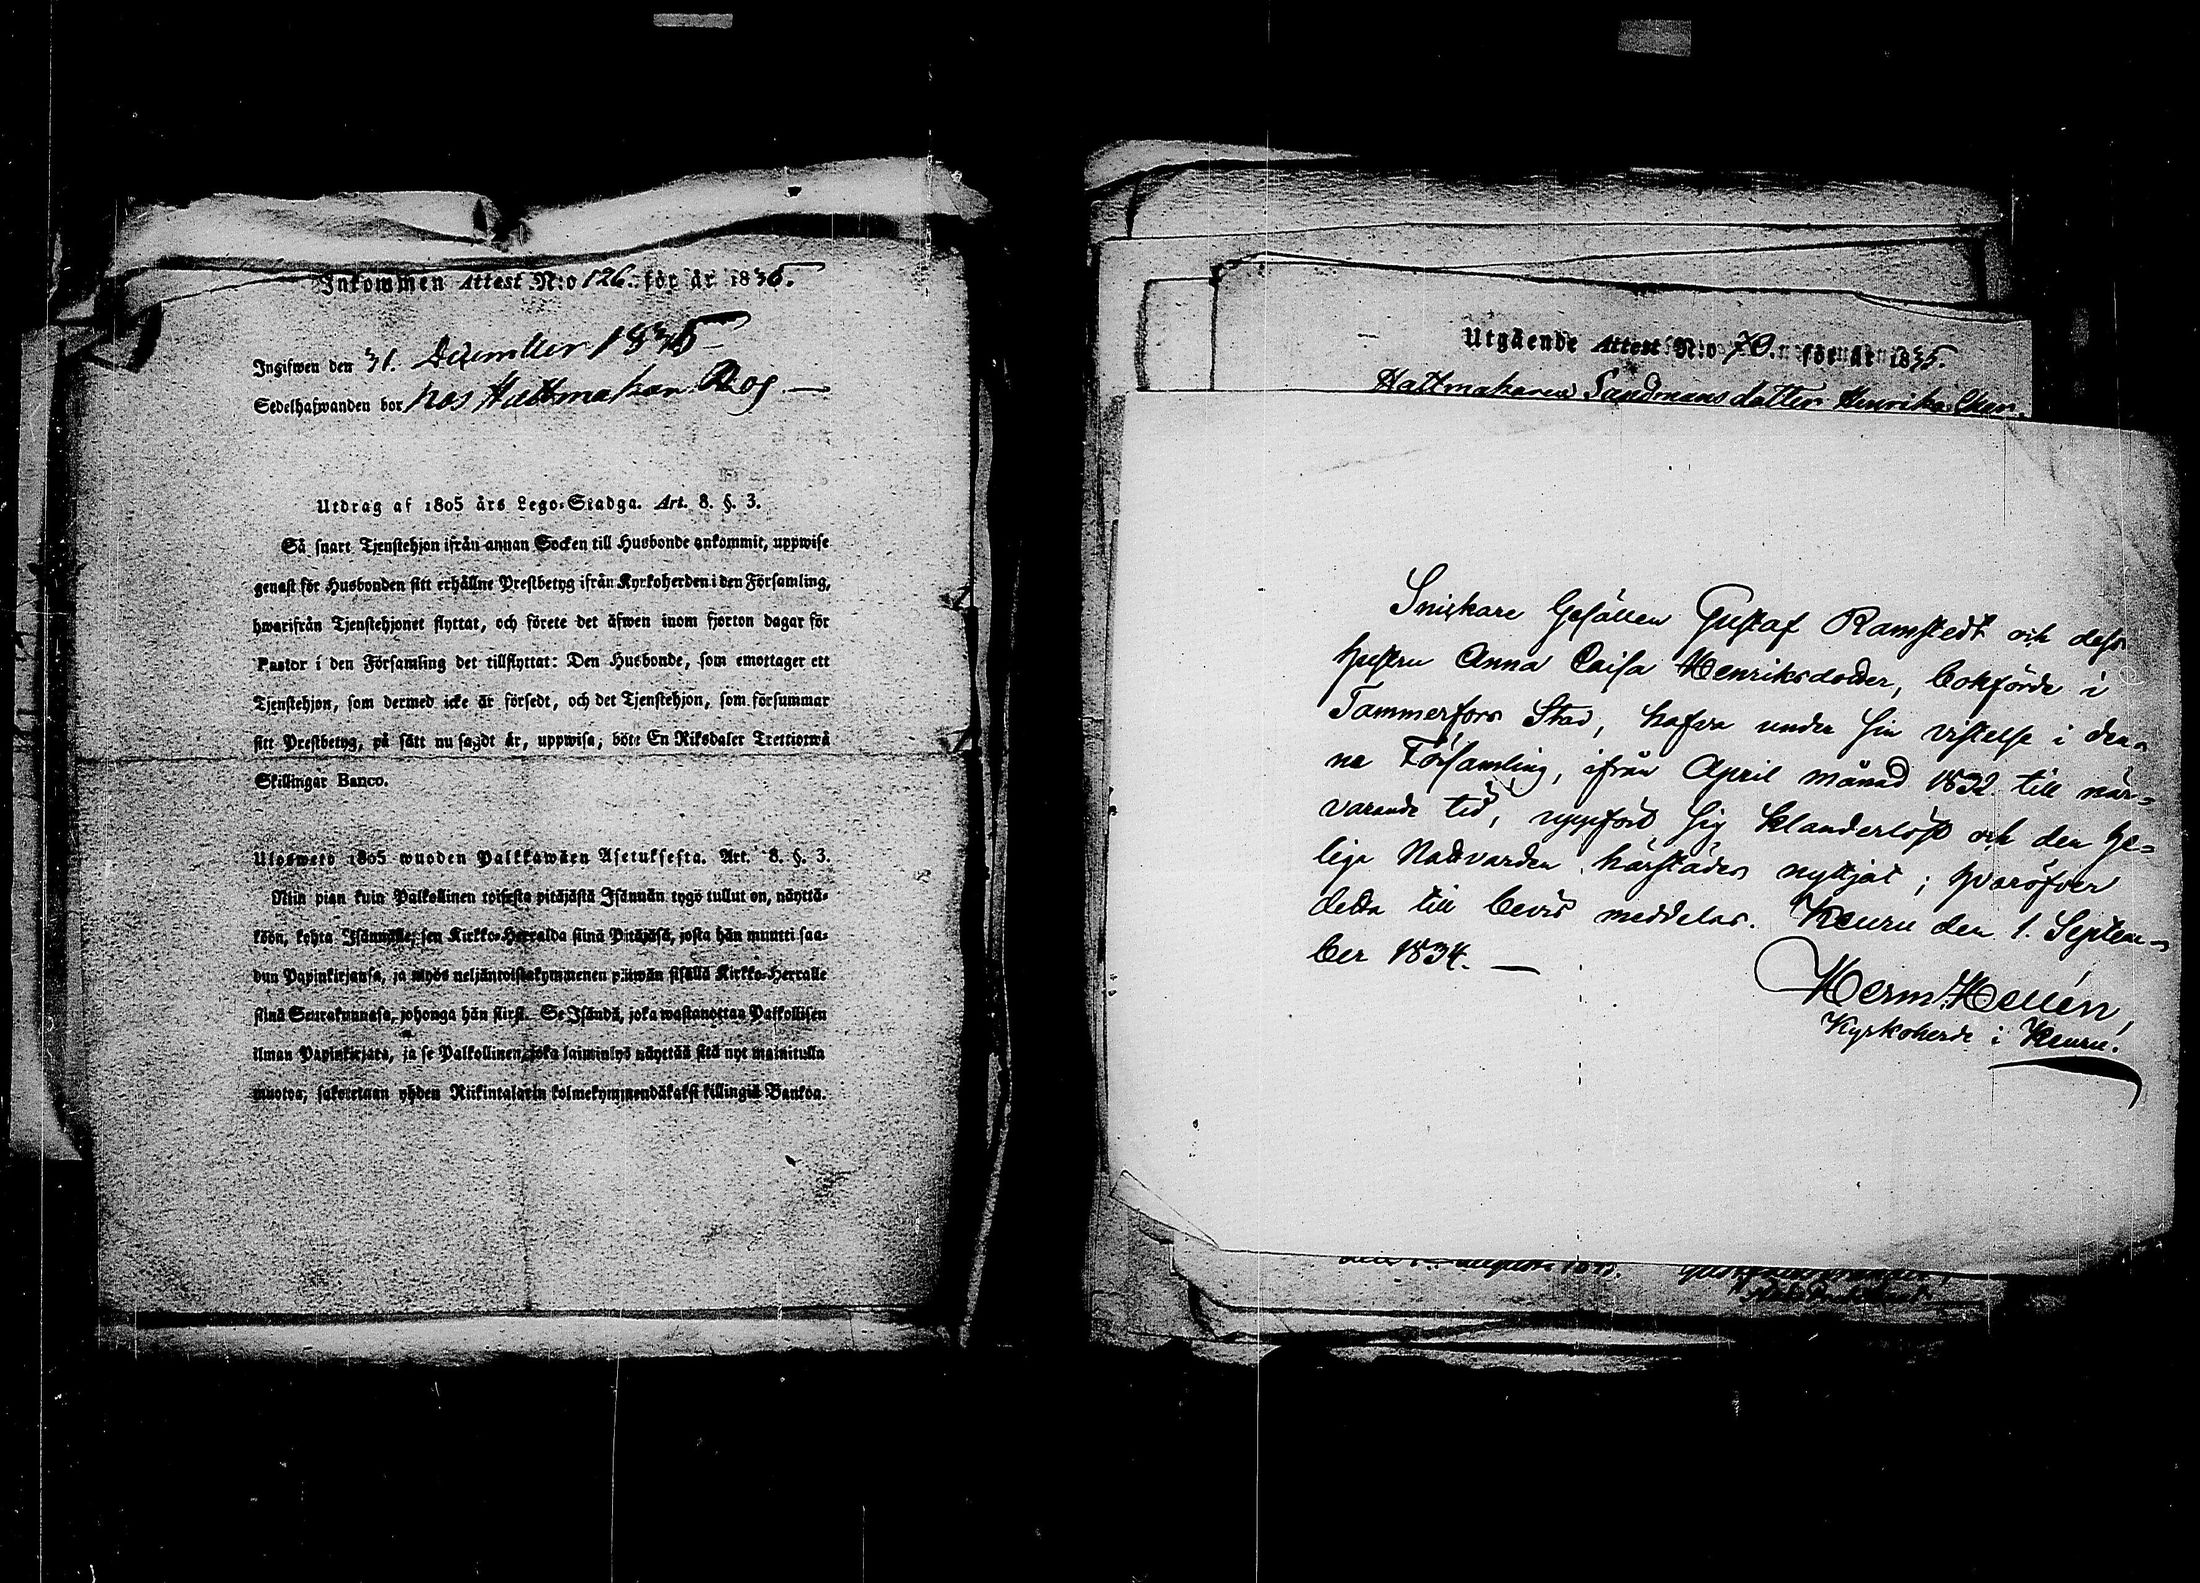 Inkommen Attest N:o 126. för år 1835.
Ingifwen den 31. December 1835
Sedelhafwanden bor hos Hattmakar Roos
Utdrag af 1805 års Lego-Stadga. Art. 8. §. 3.
Så snart Tjenstehjon ifrån annan Socken till Husbonde ankommit, uppwise
genast för Husbonden sitt erhållne Prestbetyg ifrån Kyrkoherden i den Församling,
hwarifrån Tjenstehjonet flyttat, och förete det äfwen inom fjorton dagar för
Pastor i den Församling det tillflyttat: Den Husbonde, som emottager ett
Tjenstehjon, som dermed icke är försedt, och det Tjenstehjon, som försummar
sitt Prestbetyg, på sätt nu sagdt är, uppwisa, böte En Riksdaler Trettiotwå
Skillingar Banco.
Ulosweto 1805 wuoden Palkkawäen Asetuksesta. Art. 8. §. 3.
Niin pian kuin Palkollinen toisesta pitäjästä Isännän tygö tullut on, näyttä-
köön, kohta Isännälle, sen Kirkko-Herralda siinä Pitäjäsä, josta hän muutti saa-
dun Papinkirjansa, ja myös neljäntoistakymmenen päiwän sisällä Kirkko-Herralle
siinä Seurakunnasa, johonga hän siirsi. Se Isändä, joka wastanottaa Palkollisen
ilman Papinkirjata, ja se Palkollinen, joka laiminlyö näyttää sitä nyt mainitulla
muotoa, sakotetaan yhden Riikintalarin kolmekymmendäkaksi killingiä Bankoa.
Utgående Attest N:o 70. för år 1835.
Hattmakaren Sandmans dotter Henrika Char.
Snickare Gesällen Gustaf Ramstedt och dess
hustru Anna Caisa Henriksdotter, bokförde i
Tammerfors Stad, hafva under sin vistelse i den-
na Församling, ifrån April månad 1832 till när-
varande tid, uppfört sig klanderlöst och den He-
liga Nattvarden härstädes nyttjat; hvaröfver
detta till bevis meddelas. Keuru den 1. Septem-
ber 1834.
Herm. Hellén,
Kyrkoherde i Keuru.